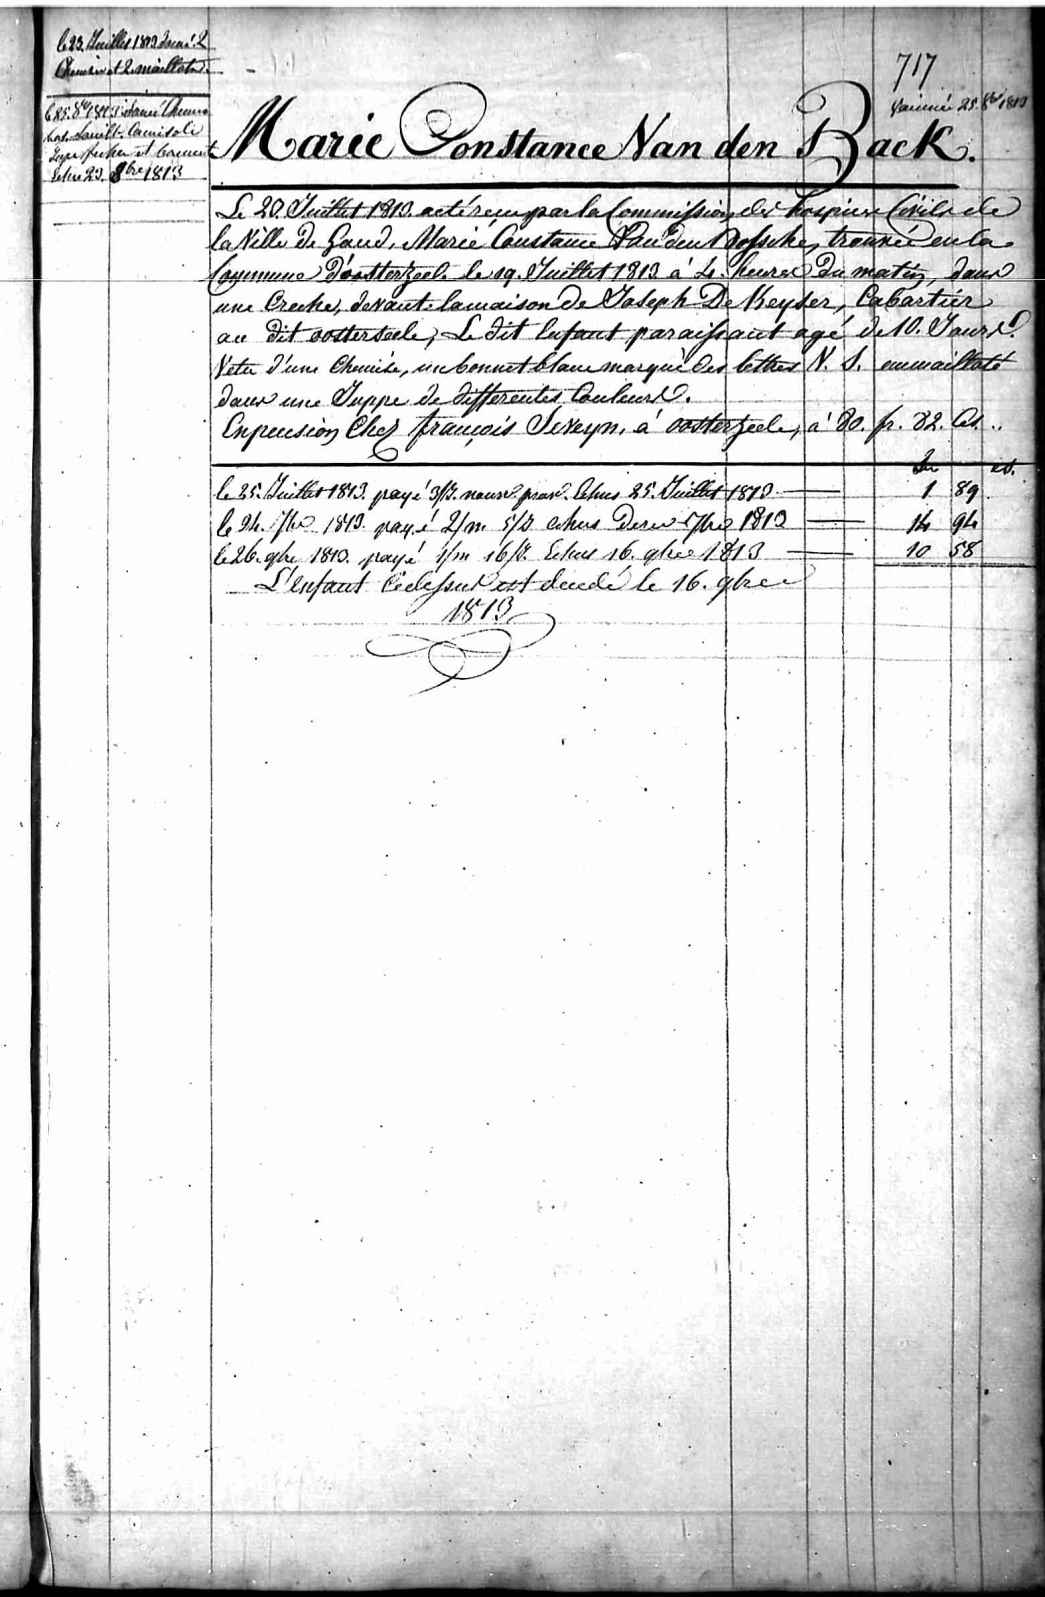 le 23. Juillet 1813 donné 2
Chemises et 2 maillots.
le 25. 8bre 1813 donné Chemise
Camisole
Jupe fichu et bonnet
Echu 23. 8bre 1813
717
Vaccinée 25. 8bre 1813
Marie Constance Van den Back.
Le 20. Juillet 1813. acté reçu par la Commission des hospices Civils de
la Ville de Gand, Marie Constance Van den Bossche, trouvée en la
Commune d'oosterzeele le 19. Juillet 1813 à 4. heures du matin, dans
une Creche, devant la maison de Joseph De Keyser, Cabartier
au dit oosterzeele, Le dit Enfant paraissant agé de 10. Jours.
Vetu d'une Chemise, un bonnet blanc marqué des lettres V. S. emmailloté
dans une Juppe de differentes Couleurs.
En pension Chez françois Seveyn, à oosterzeele, à 80. fr. 82. Cs.
le 25. Juillet 1813. payé 3/J. Echus 25. Juillet 1813 — 1 89
le 24. 7bre 1813. payé 2/m 5/J echus 7bre 1813 — 14 94
le 26. 9bre 1813. payé 1/m 16/J. Echus 16. 9bre 1813 — 10 58
L'enfant Cidessus est decedé le 16. 9bre
1813